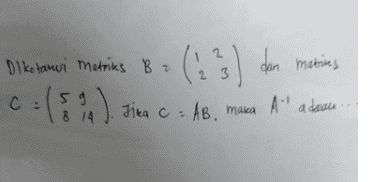 Diketahui matriks B = ( 1 2
2 3 ) dan matriks
C = ( 5 9
8 14 ). Jika C = AB, maka A⁻¹ adalah ...